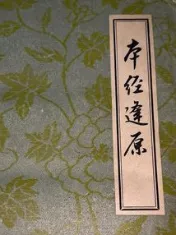 本经逢原